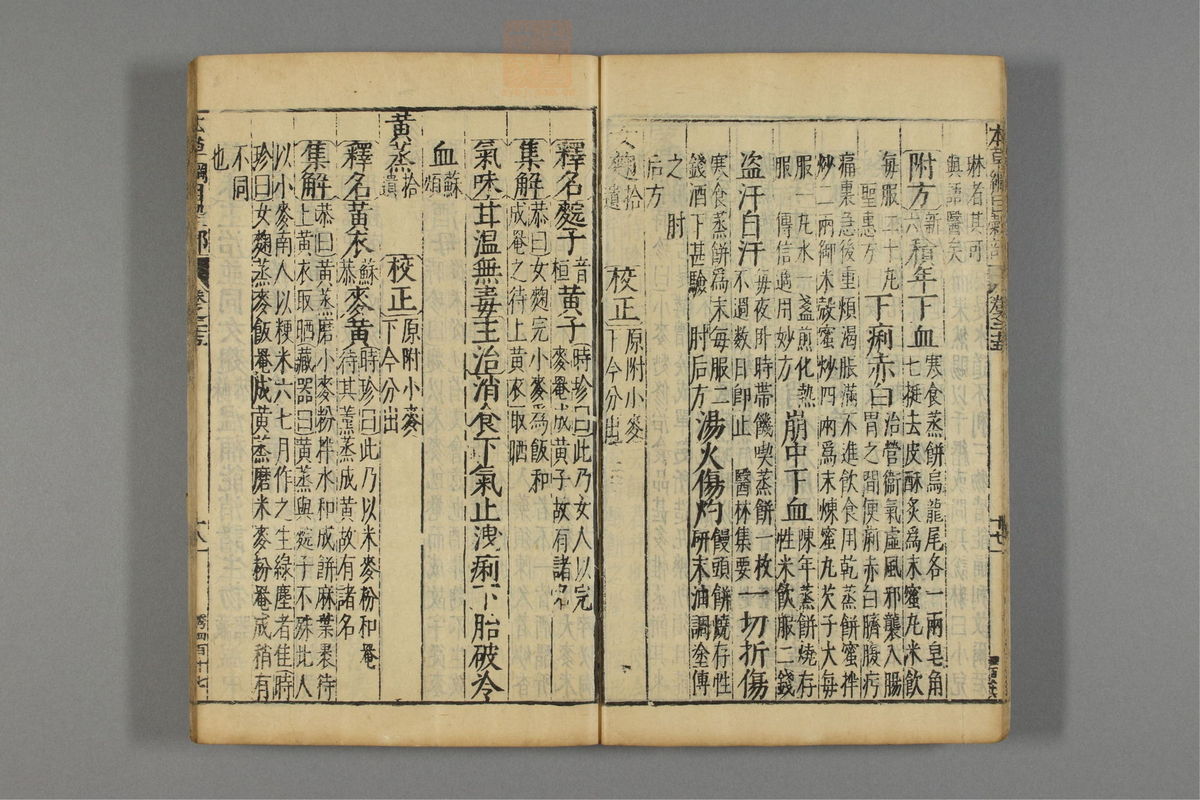 淋者其可
與語醫矣
附方新六積年下血寒食蒸餅烏龍尾各一兩皂角
七挺去皮酥炙爲末蜜丸米飲
每服二十丸下痢赤白治營衞氣虛風邪襲入腸
聖惠方胃之間便痢赤白臍腹㽲
痛裏急後重煩渴脹滿不進飲食用乾蒸餅蜜拌
炒二兩御米殼蜜炒四兩爲末煉蜜丸芡子大每
服一丸水一盞煎化熱崩中下血陳年蒸餅燒存
服傳信適用妙方性米飲服二錢
盗汗自汗每夜卧時帶饑喫蒸餅一枚
不過數日即止醫林集要一切折傷
寒食蒸餅爲末每服二
錢酒下甚驗肘后方湯火傷灼饅頭餅燒存性
研末油調塗傅
之肘
后方
女麴拾遺校正原附小麥
下今分出
釋名䴷子音桓黃子時珍曰此乃女人以完
麥罨成黃子故有諸名
集解恭曰女麴完小麥爲飯和
成罨之待上黃衣取晒
氣味甘溫無毒主治消食下氣止洩痢下胎破冷
血蘇頌
黃蒸拾遺校正原附小麥
下今分出
釋名黃衣蘇恭麥黃時珍曰此乃以米麥粉和罨
待其薰蒸成黃故有諸名
集解恭曰黃蒸磨小麥粉拌水和成餅麻葉裹待
上黃衣取晒藏器曰黃蒸與䴷子不殊北人
以小麥南人以粳米六七月作之生綠塵者佳時
珍曰女麴蒸麥飯罨成黃蒸磨米麥粉罨成稍有
不同
也